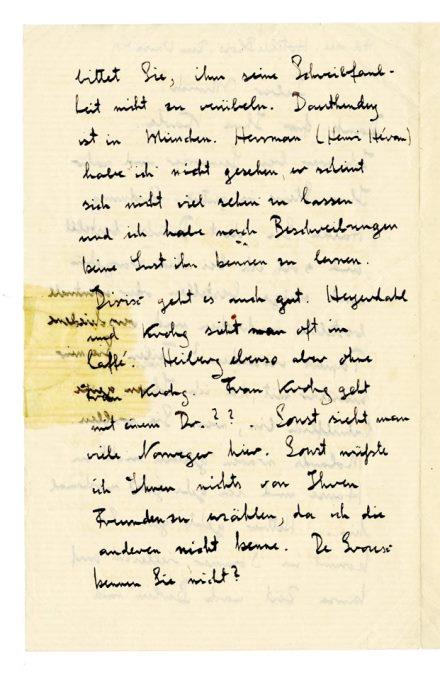 bittet Sie, ihm seine Schreibfaul-
keit nicht zu verübeln. Dauthendey
ist in München. Herrman (Henri Héran)
habe ich nicht gesehen, er scheint
sich nicht viel sehen zu lassen
und ich habe nach Beschreibungen
keine Lust ihn kennen zu lernen.
geht es auch gut. Heyerdahl
und Krohg sieht man oft im
Caffé. Heiberg ebenso aber ohne
Frau Krohg. Frau Krohg geht
mit einem Dr. ? ? . Sonst sieht man
viele Norweger hier. Sonst wüßte
ich Ihnen nichts von Ihren
Freunden zu erzählen, da ich die
anderen nicht kenne. De
kennen Sie nicht?